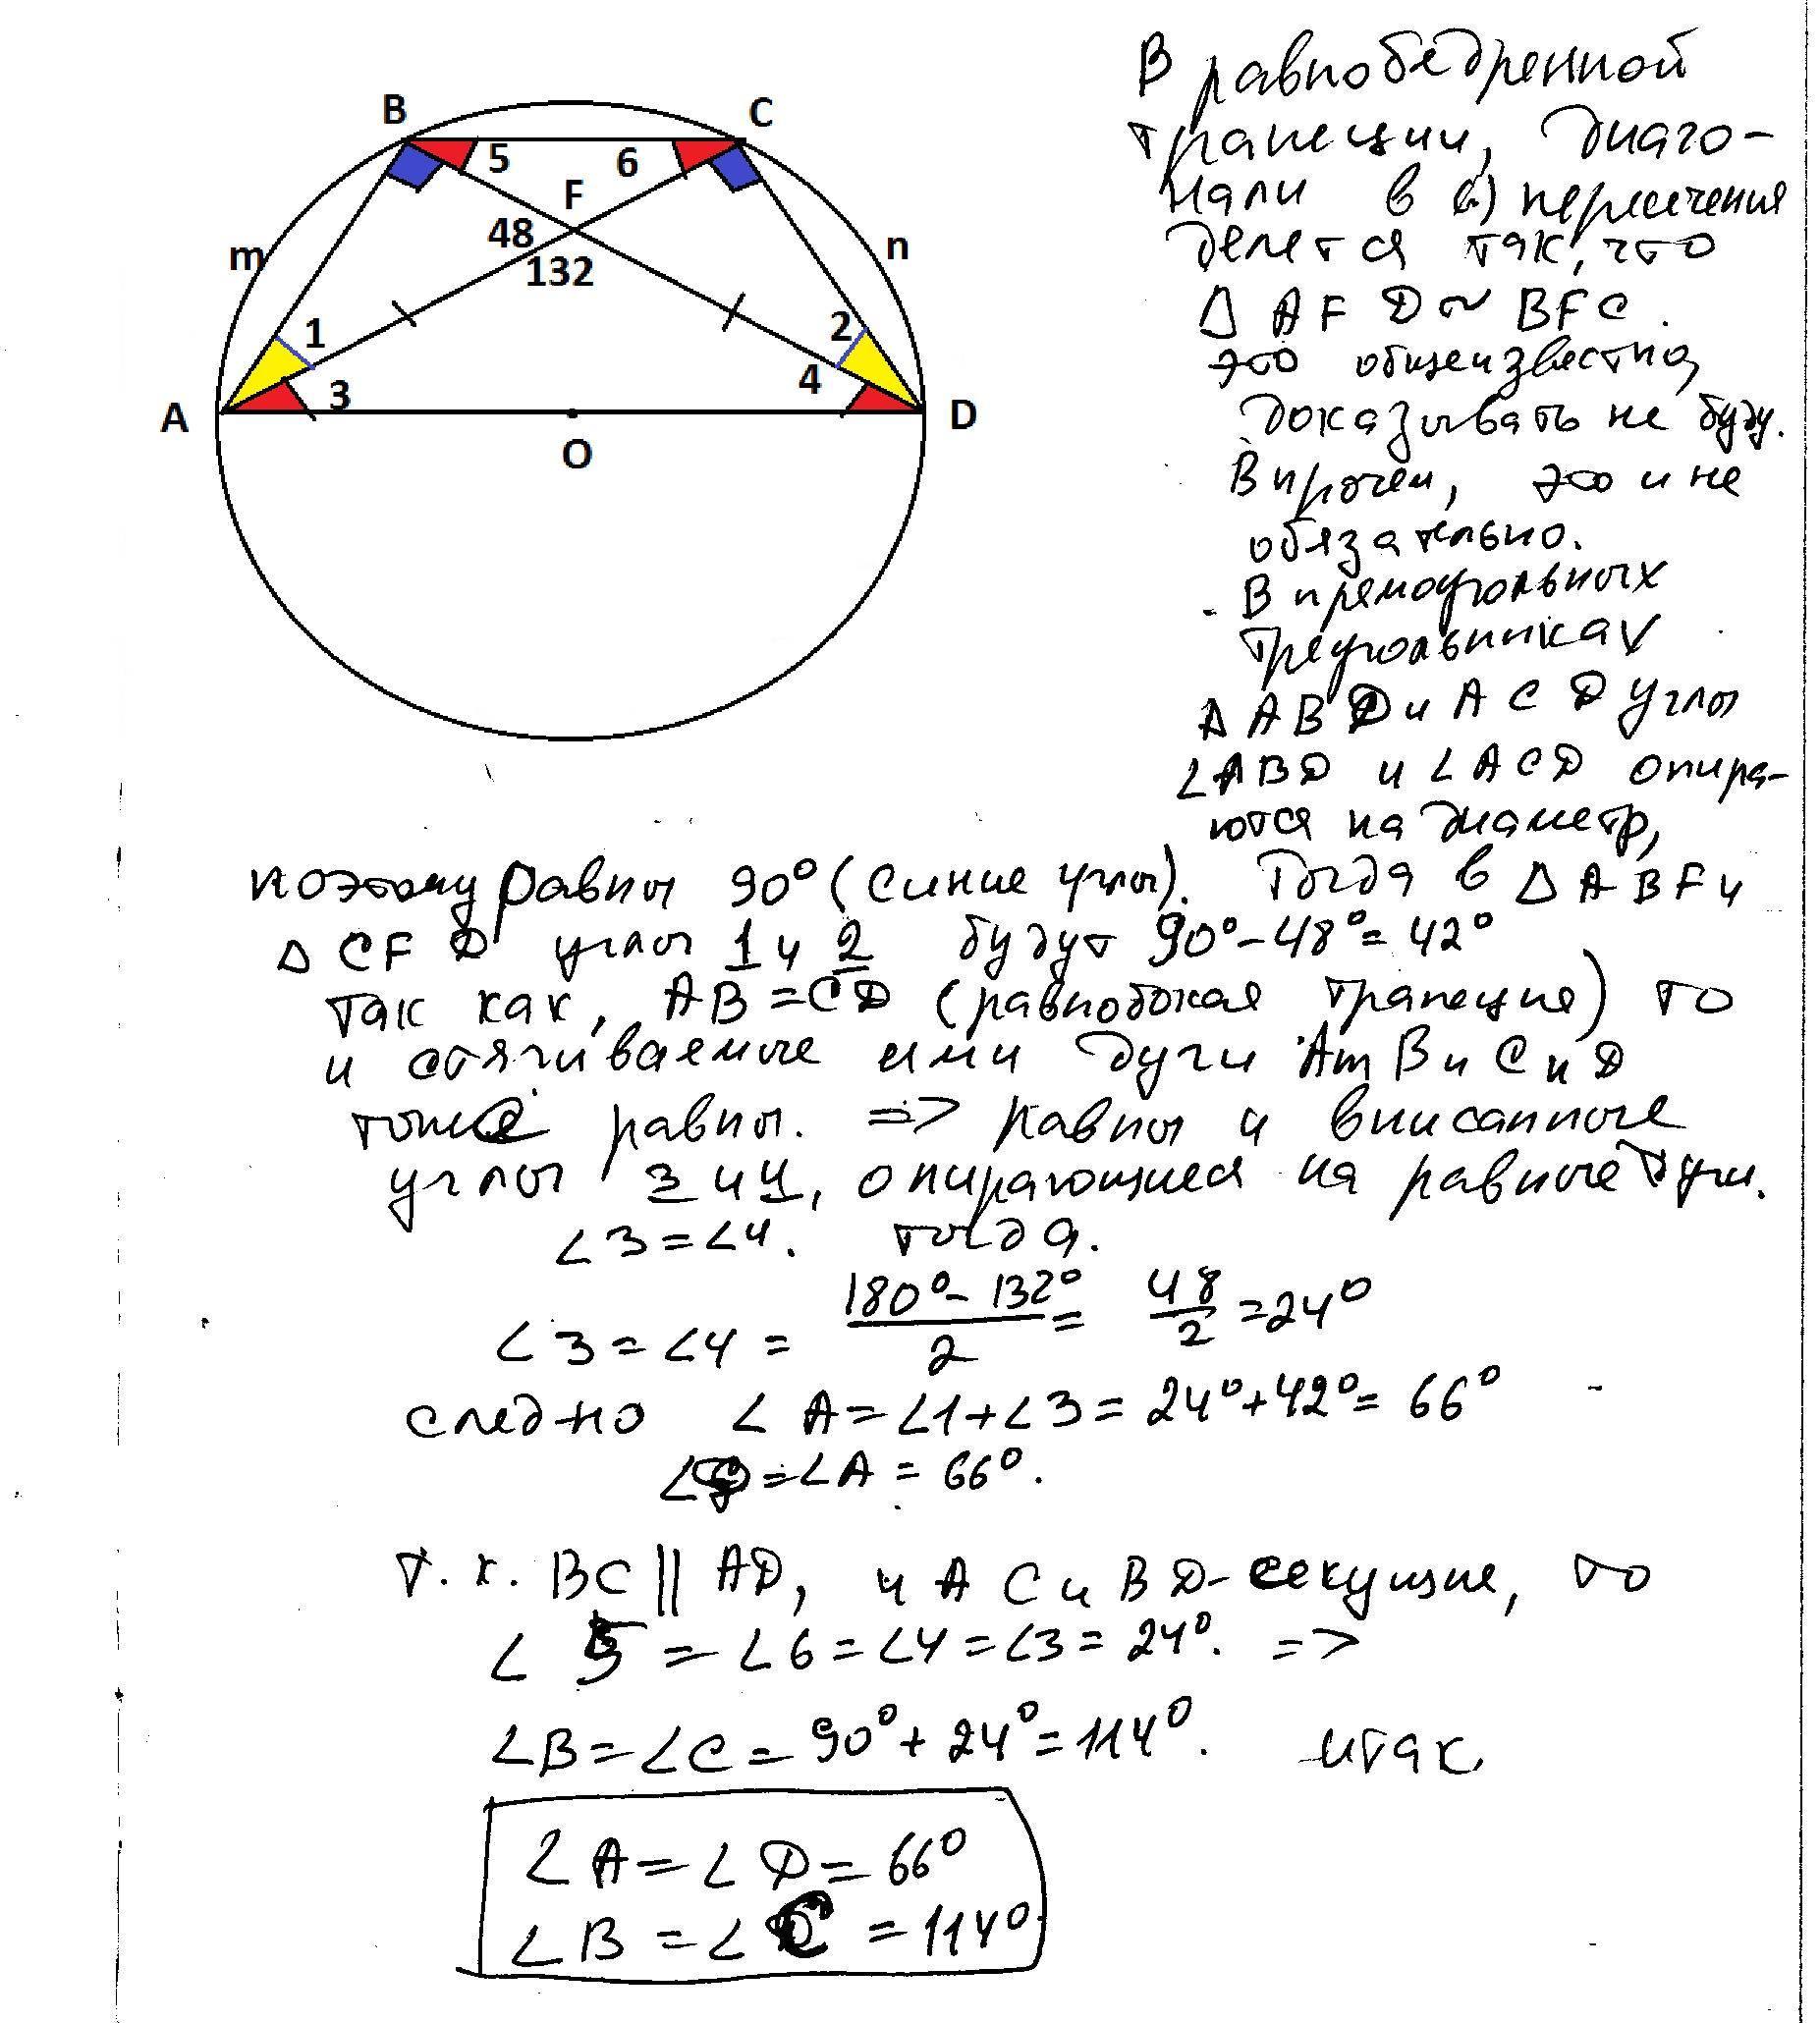 B
C
5
6
F
48
132
m
n
1
2
3
4
A
D
O
В равнобедренной
трапеции, диаго-
нали в (.) пересечения
делятся так, что
Δ AFD ~ BFC.
это общеизвестно,
доказывать не буду.
Впрочем, это и не
обязательно.
В прямоугольных
треугольниках
Δ ABD и ACD углы
∠ABD и ∠ACD опира-
ются на диаметр,
поэтому равны 90° (синие углы). Тогда в Δ ABF и
Δ CFD углы 1 и 2 будут 90°-48°=42°
так как, AB=CD (равнобокая трапеция) то
и стягиваемые ими дуги AmB и CnD
тоже равны. => равны и вписанные
углы 3 и 4, опирающиеся на равные дуги.
∠3=∠4. тогда.
∠3=∠4= (180°-132°)/2 = 48/2 =24°
след-но ∠A=∠1+∠3=24°+42°=66°
∠D=∠A=66°.
т.к. BC || AD, и AC и BD-секущие, то
∠5=∠6=∠4=∠3=24°. =>
∠B=∠C=90°+24°=114°. итак,
∠A=∠D=66°
∠B=∠C=114°